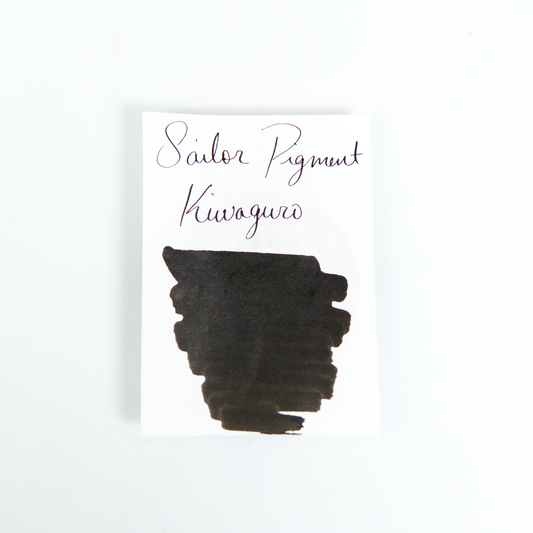 Sailor Pigment
Kiwaguro